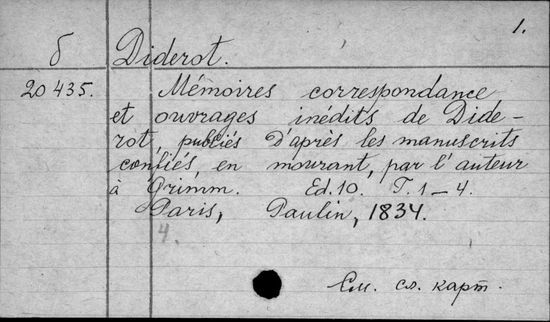 1.
б Diderot.
20 435. Mémoires correspondance
et ouvrages inédits de Dide-
rot, publiés d'après les manuscrits
confiés, en mourant, par l'auteur
à Grimm. Ed. 10. T. 1–4.
Paris, Paulin, 1834.
4.
См. сл. карт.